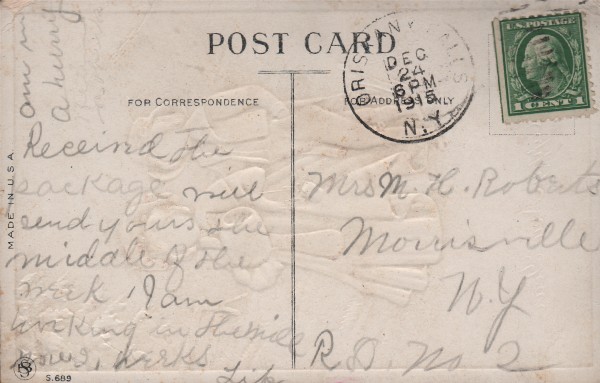 am in
a hurry
POST CARD
FOR CORRESPONDENCE
FOR ADDRESS ONLY
U.S. POSTAGE
1 CENT 1
DEC
24
6 PM
1915
N.Y.
Received the
package will
send yours the
middle of the
week, I am
working in the Mill
weeks
Mrs M. H. Roberts
Morrisville
N.Y
R.D. No 2
MADE IN U.S.A.
S.689